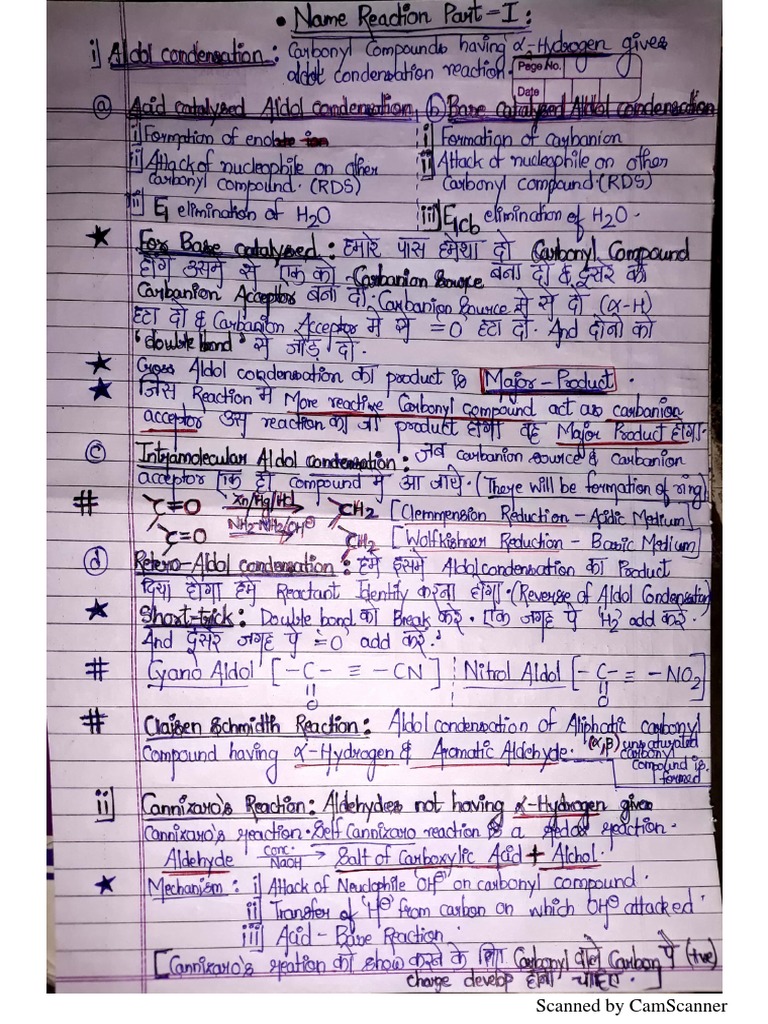 • Name Reaction Part-I:
i) Aldol condensation: Carbonyl Compounds having α-Hydrogen gives
aldol condensation reaction.
Page No.
Date
ⓐ Acid catalysed Aldol condensation
ⓑ Base catalysed Aldol condensation
i) Formation of enol
ii) Attack of nucleophile on other
Carbonyl compound. (RDS)
iii) E₁ elimination of H₂O
i) Formation of carbanion
ii) Attack of nucleophile on other
Carbonyl compound. (RDS)
iii) E₁cb elimination of H₂O.
★ For Base catalysed: हमारे पास हमेशा दो Carbonyl Compound
होंगे उसमे से एक को Carbanion Source बना दो & दूसरे को
Carbanion Acceptor बना दो. Carbanion Source मे से दो (α-H)
हटा दो & Carbanion Acceptor में से =O हटा दो. And दोनो को
'double bond' से जोड़ दो.
★ Cross Aldol condensation का product is Major-Product.
★ जिस Reaction मे More reactive Carbonyl compound act as carbanion
acceptor उस reaction का जो product होगा वह Major Product होगा.
ⓒ Intramolecular Aldol condensation: जब carbanion source & carbanion
acceptor एक ही compound मे आ जाये. (There will be formation of ring)
# C=O Zn/Hg/Hcl → CH₂ [Clemmension Reduction - Acidic Medium]
C=O NH₂-NH₂/OH⊖ CH₂ [Wolfkishner Reduction - Basic Medium]
ⓓ Retero-Aldol condensation: हमे इसमे Aldol condensation का Product
दिया होगा हमे Reactant Identify करना होगा. (Reverse of Aldol Condensation)
★ Short-trick: Double bond को Break करे. एक जगह पे 'H₂' add करे.
And दूसरे जगह पे '=O' add करे.
# Cyano Aldol [-C- ≡ -CN] Nitrol Aldol [-C- ≡ -NO₂]
O O
# Claisen Schmidth Reaction: Aldol condensation of Aliphatic carbonyl
Compound having α-Hydrogen & Aromatic Aldehyde.
(α,β) unsaturated
carbonyl
compound is
formed
ii) Cannizaro's Reaction: Aldehydes not having α-Hydrogen gives
Cannizaro's reaction. Self Cannizaro reaction is a redox reaction.
Aldehyde conc. NaOH → Salt of Carboxylic Acid + Alchol.
★ Mechanism: i) Attack of Neuclophile 'OH⊖' on carbonyl compound.
ii) Transfer of 'H⊖' from carbon on which 'OH⊖' attacked.
iii) Acid-Base Reaction.
[Cannizaro's reation को show करने के लिए Carbonyl वाले Carbon पे (+ve)
charge develop होना चाहिए.]
Scanned by CamScanner